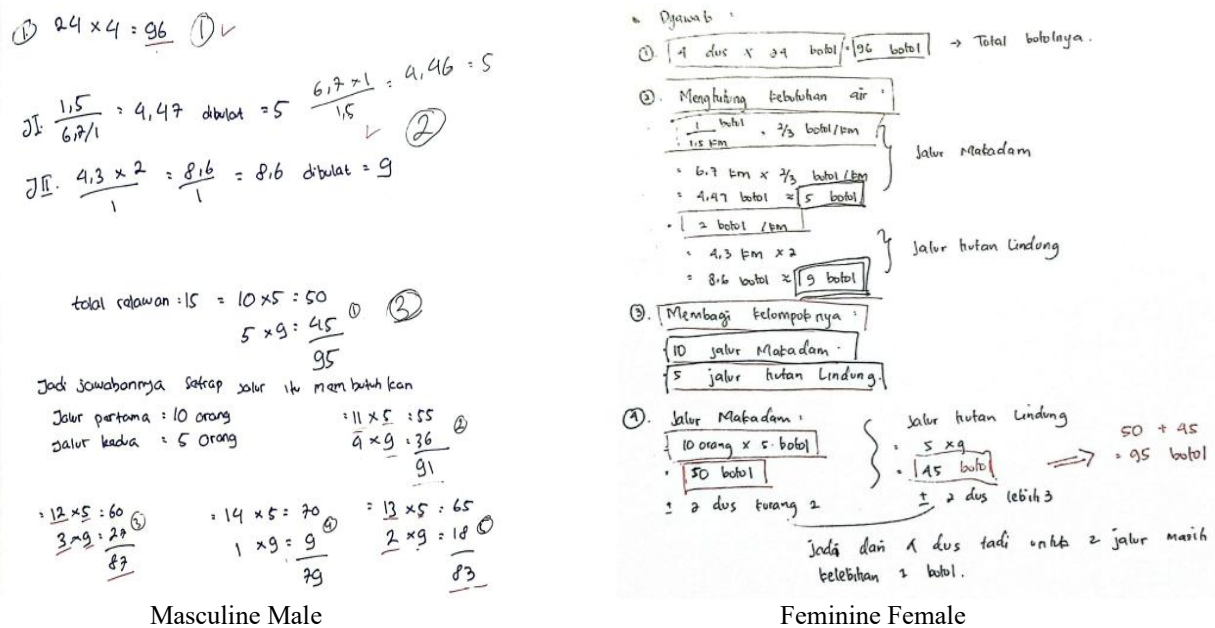 ① 24 × 4 : 96 ①
JI. 1,5 / 6,7/1 : 4,47 dibulat = 5
6,7 × 1 / 1,5 : 4,46 = 5
②
JII. 4,3 × 2 / 1 : 8,6 / 1 = 8,6 dibulat = 9
total ralawan : 15 = 10 × 5 : 50
5 × 9 : 45 ① ③
95
Jadi jawabannya Setiap jalur itu membutuhkan
Jalur pertama : 10 orang
Jalur kedua : 5 orang
: 11 × 5 : 55
4 × 9 : 36 ②
91
: 12 × 5 : 60
3 × 9 : 27 ③
87
: 14 × 5 : 70
1 × 9 : 9 ④
79
= 13 × 5 : 65
2 × 9 : 18
83
Masculine Male
Djawab :
①. 4 dus × 24 botol = 96 botol → Total botolnya.
②. Menghitung kebutuhan air :
1 botol / 1.5 km = 2/3 botol/km
= 6.7 km × 2/3 botol/km
= 4,47 botol ≈ 5 botol
Jalur Makadam
2 botol /km
= 4,3 km × 2
= 8,6 botol ≈ 9 botol
Jalur hutan Lindung
③. Membagi kelompoknya :
10 jalur Makadam.
5 jalur hutan Lindung.
④. Jalur Makadam :
10 orang × 5 botol
= 50 botol
± 2 dus kurang 2
Jalur hutan Lindung
= 5 × 9
= 45 botol
± 2 dus lebih 3
50 + 45
= 95 botol
jadi dari 4 dus tadi untuk 2 jalur masih
kelebihan 1 botol.
Feminine Female